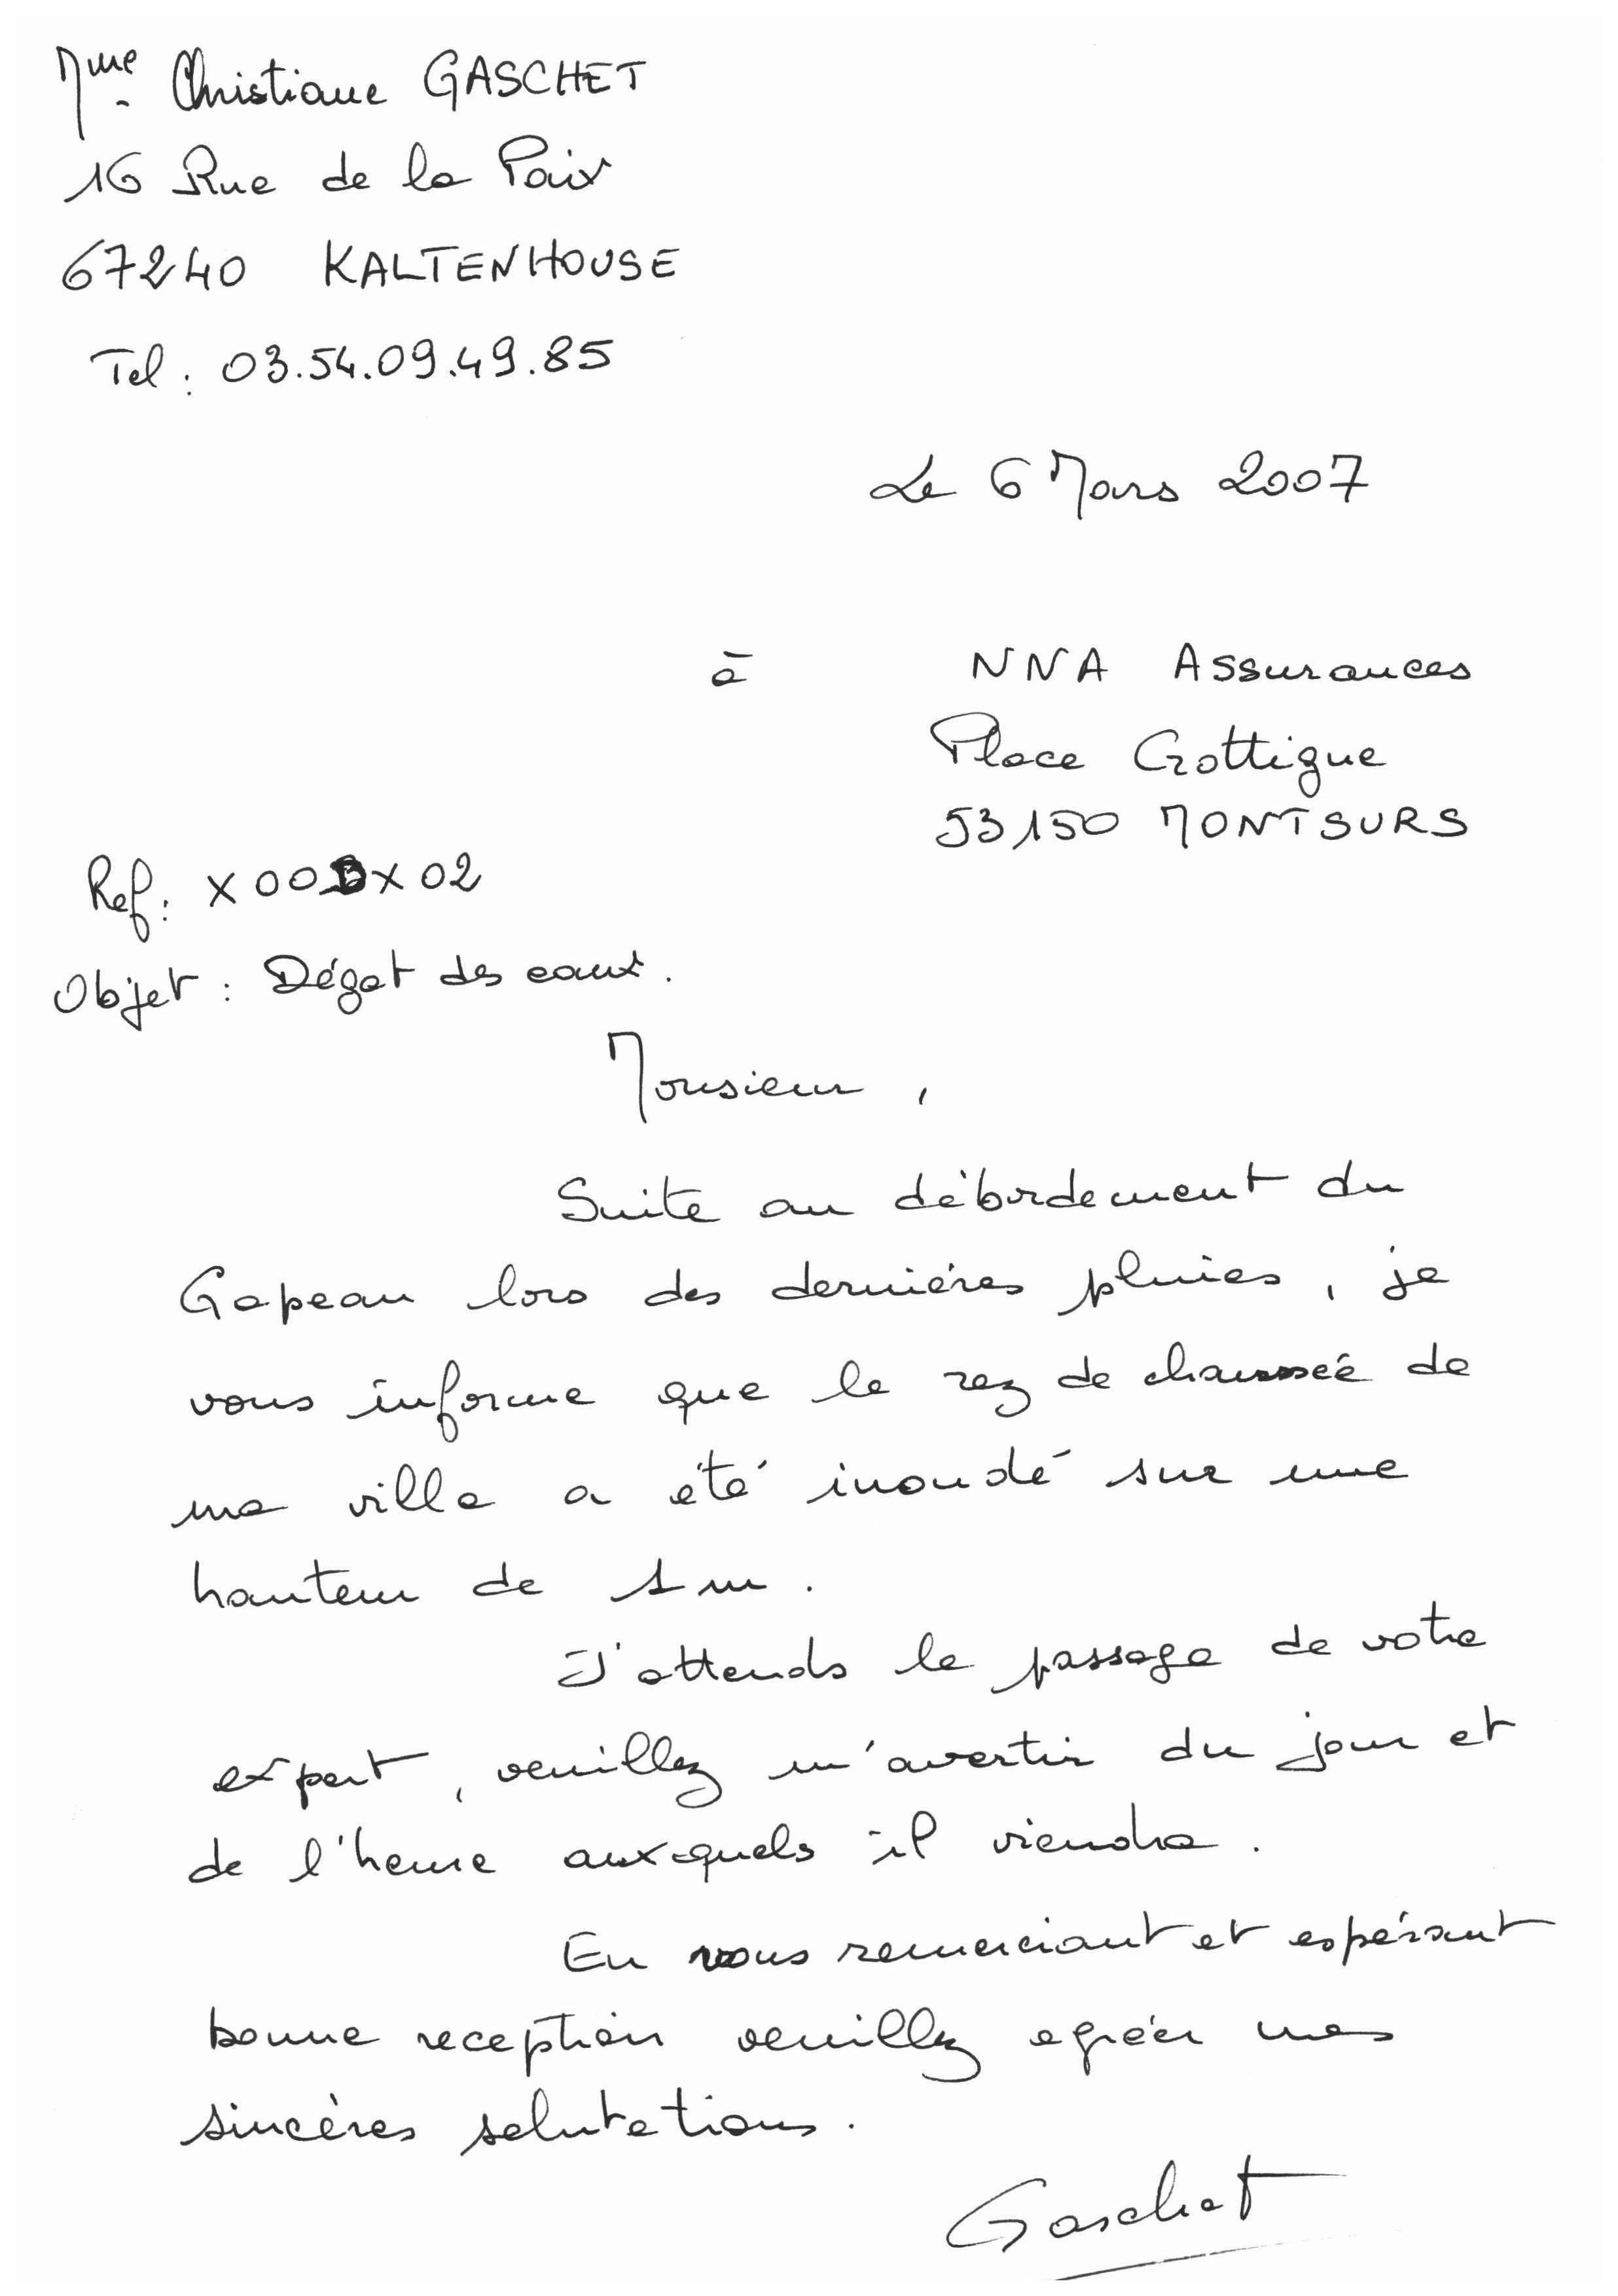 Mme Christiane GASCHET
16 Rue de la Paix
67240 KALTENHOUSE
Tel : 03.54.09.49.85
Le 6 Mars 2007
à NNA Assurances
Place Gottigue
53150 MONTSURS
Ref :
Objet : Dégat des eaux.
Monsieur,
Suite au débordement du
Gapeau lors des derniéres pluies, je
vous informe que le rez de chaussée de
ma villa a été inondé sur une
hauteur de 1m.
J'attends le passage de votre
expert, veuillez m'avertir du jour et
de l'heure auxquels il viendra.
En vous remerciant et espérant
bonne reception veuillez agréer mes
sincères salutations.
Gaschet